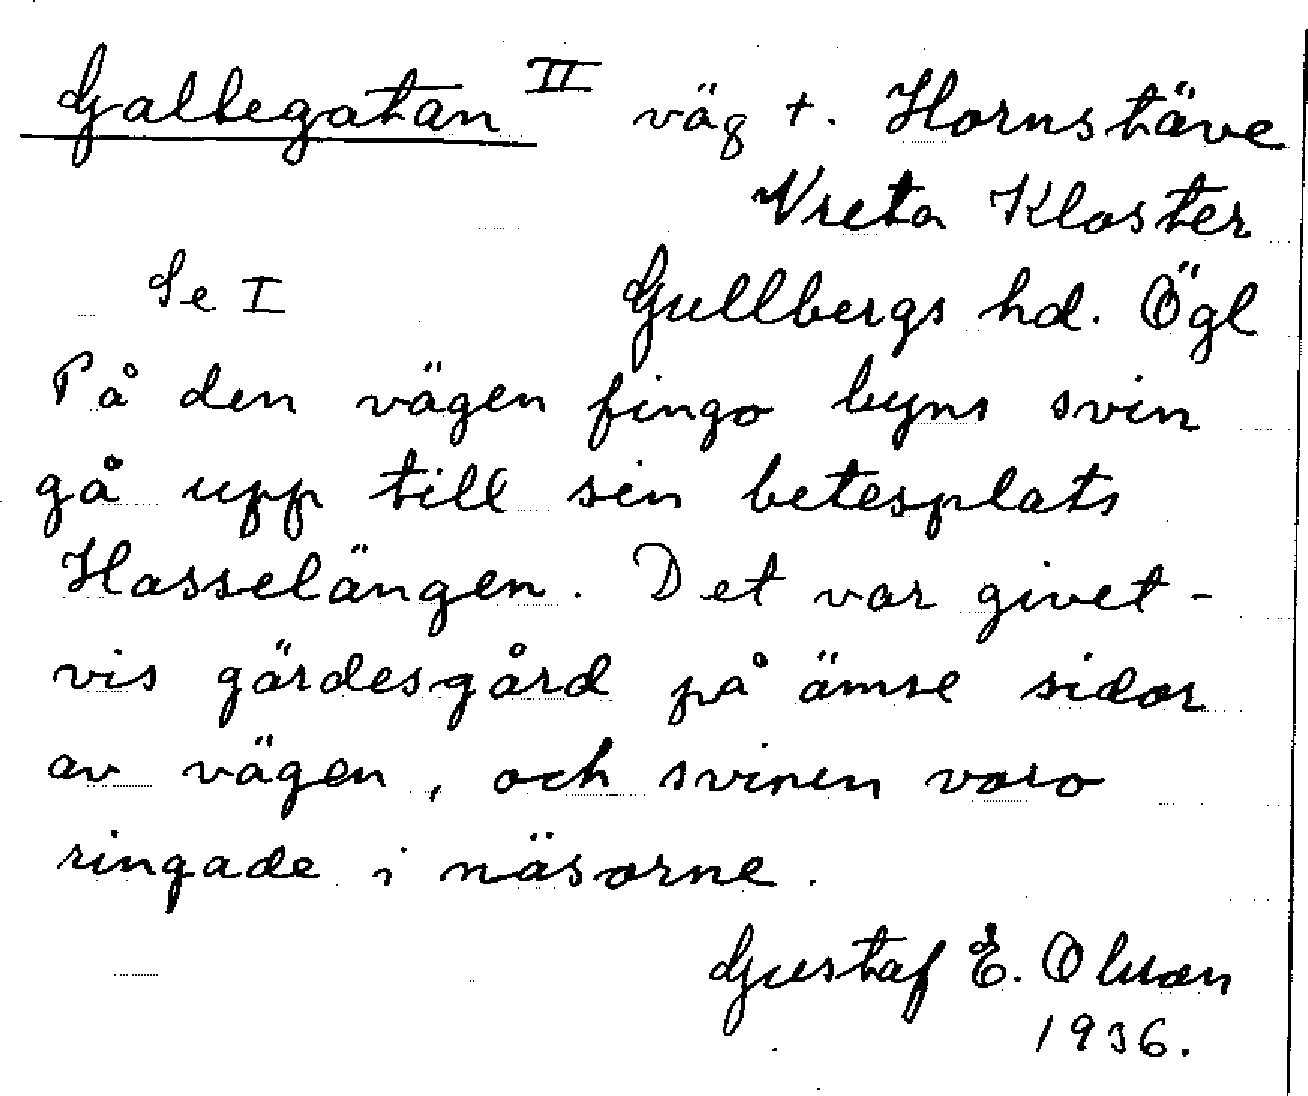 Gallegatan II väg t. Hornstäve
Vreta Kloster
Se I Gullbergs hd. Ögl
På den vägen fingo byns svin
gå upp till sin betesplats
Hasselängen. Det var givet-
vis gärdesgård på ämse sidor
av vägen, och svinen voro
ringade i näsorne.
Gustaf E. Olson
1936.